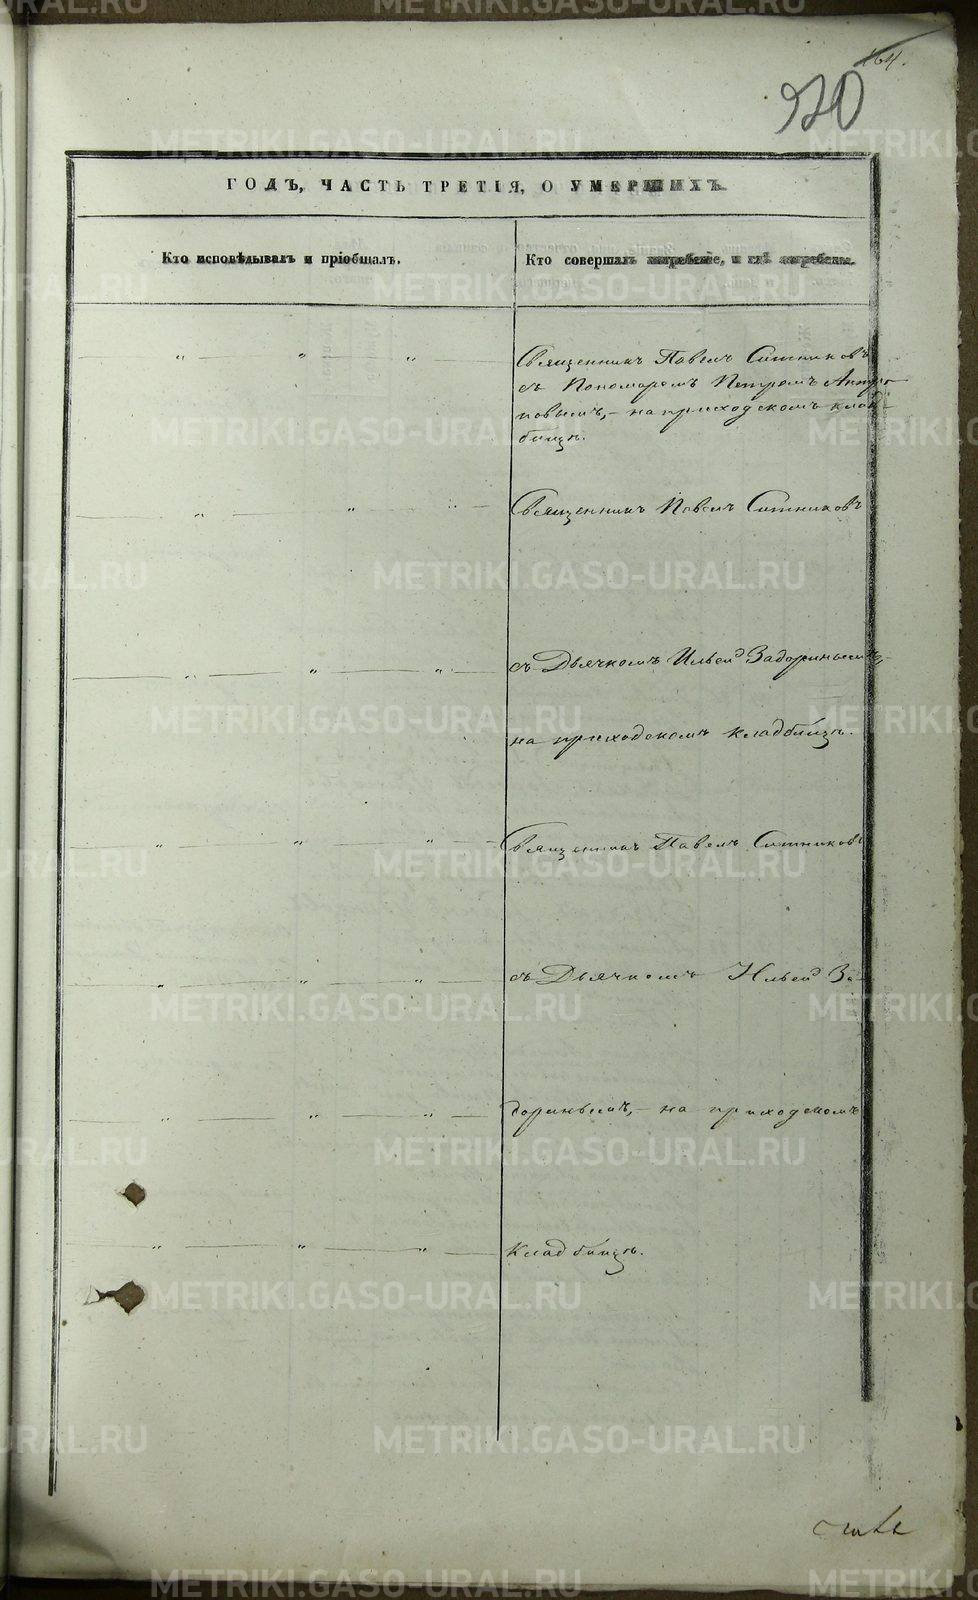 164.
920
ГОДЪ, ЧАСТЬ ТРЕТІЯ, О УМЕРШИХЪ.
Кто исповѣдывалъ и пріобщалъ.
Кто совершалъ погребеніе, и гдѣ погребены.
Священникъ Павелъ Ситниковъ
съ Пономаремъ Петромъ Антро
повымъ,- на приходскомъ клад-
бищѣ.
Священникъ Павелъ Ситниковъ
съ Дьячкомъ Ильей Задоринымъ,-
на приходскомъ кладбищѣ.
Священникъ Павелъ Ситниковъ
съ Дьячкомъ Ильей За-
доринымъ,- на приходскомъ
кладбищѣ.
METRIKI.GASO-URAL.RU